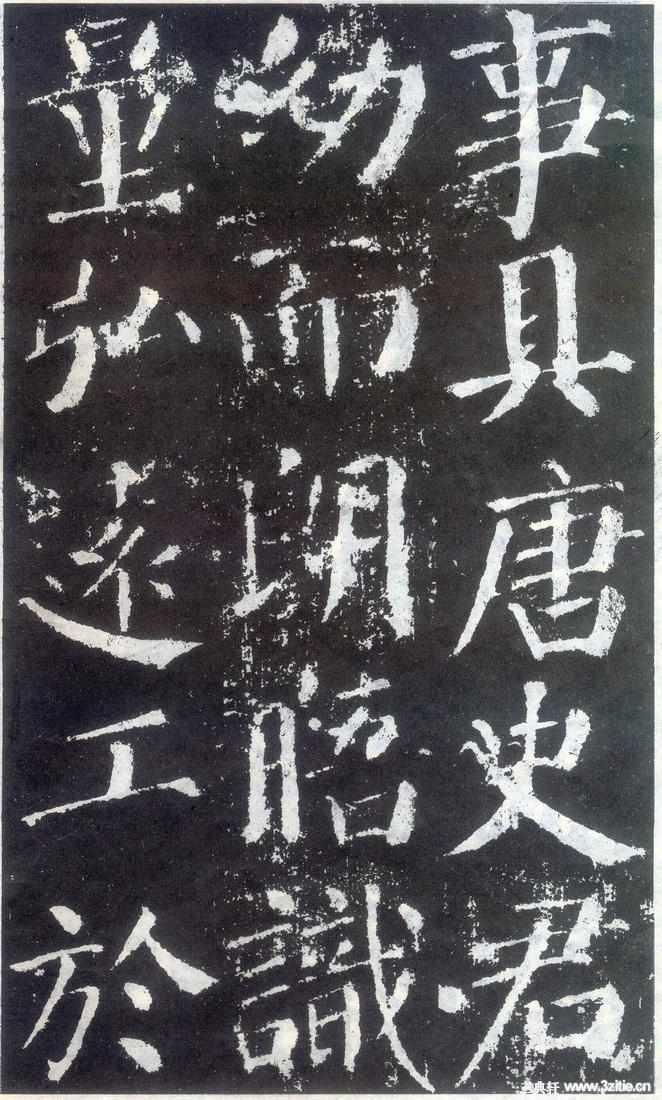 事具唐史君
幼而朗晤識
量弘遠工於
典轩 www.3zitie.cn